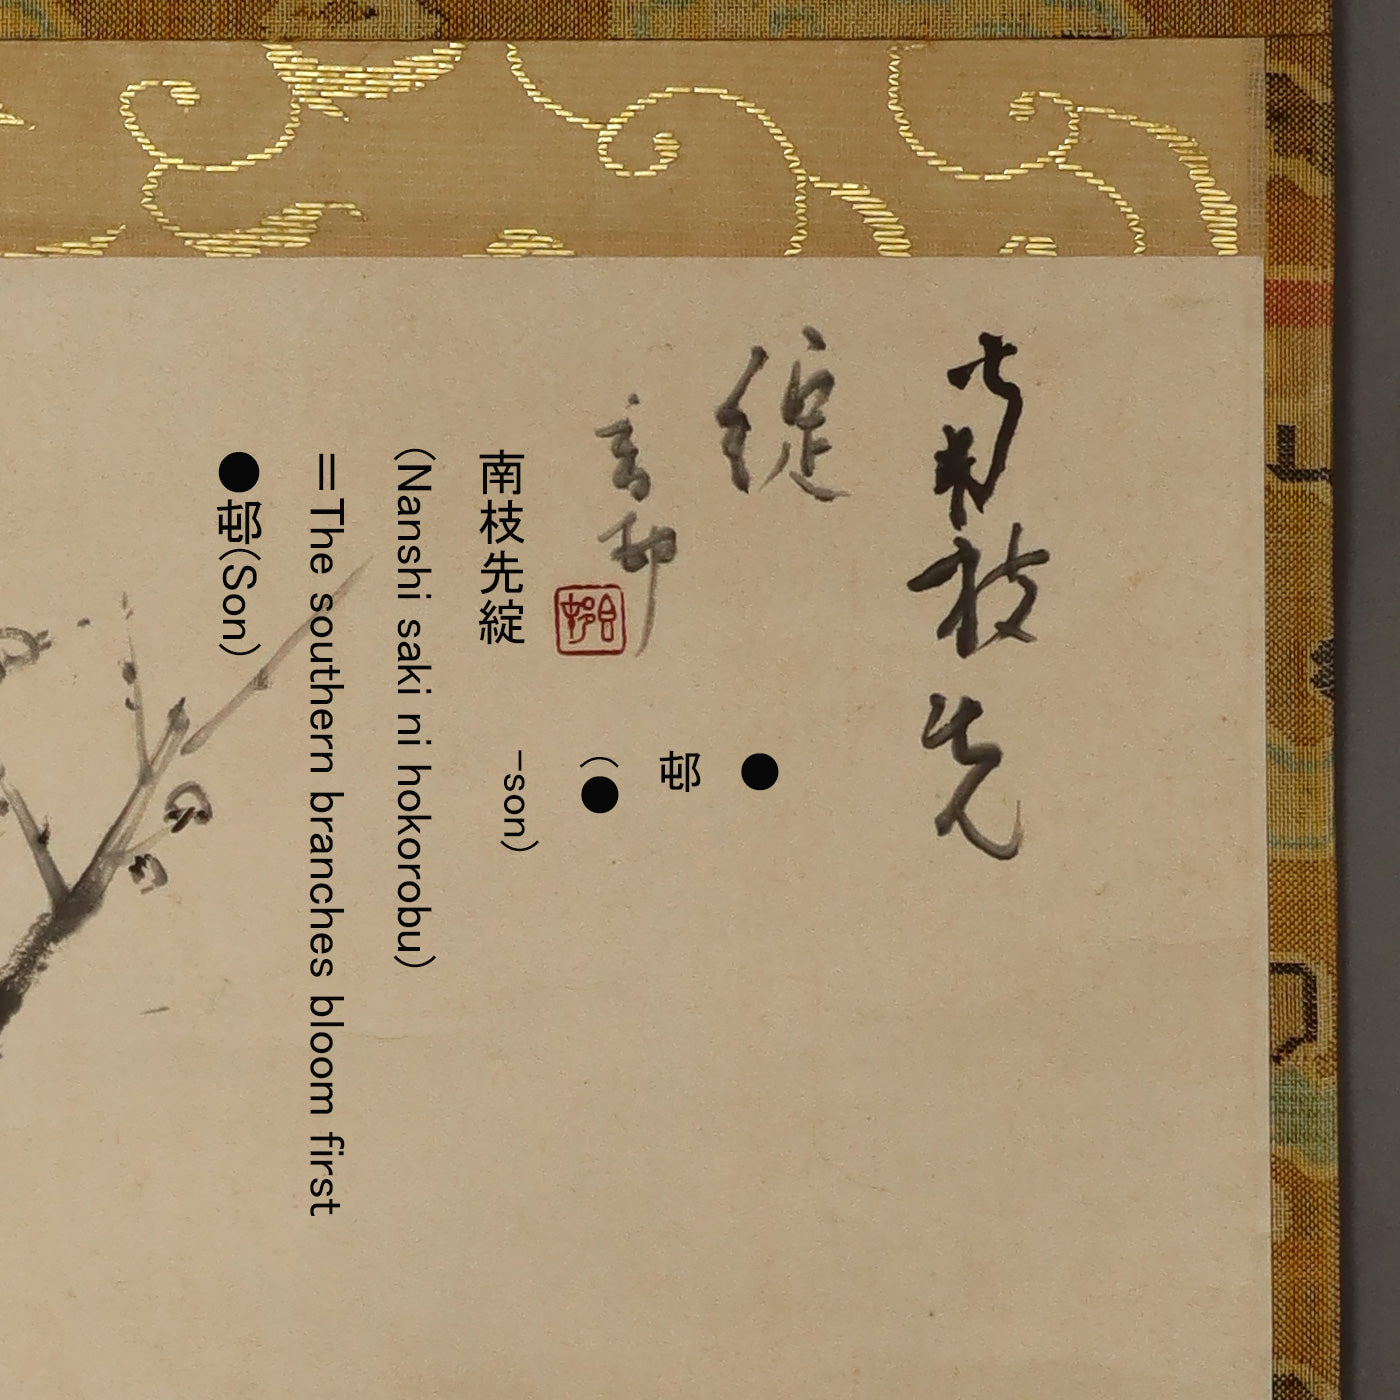 南枝先
綻
邨
●
邨
（●
-son）
南枝先綻
（Nanshi saki ni hokorobu）
＝The southern branches bloom first
●邨（Son）